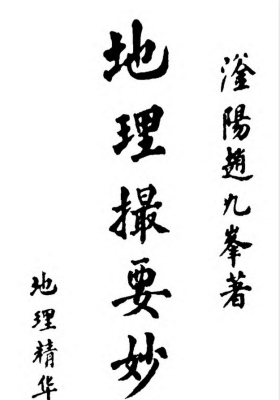 滏陽趙九峯著
地理撮要妙
地理精华